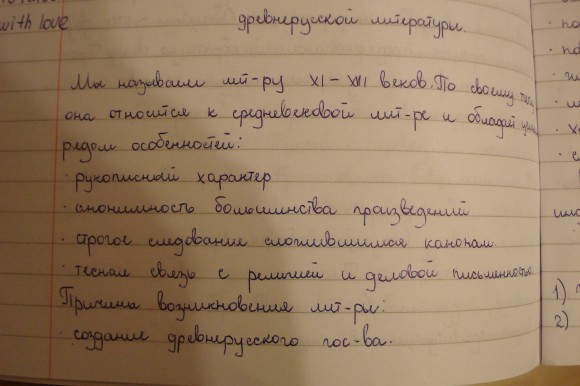 with love
древнерусской литературы.
Мы называем лит-ру XI – XVII веков. По своему типу
она относится к средневековой лит-ре и обладает целым
рядом особенностей:
· рукописный характер
· анонимность большинства произведений
· строгое следование сложившимся канонам
· тесная связь с религией и деловой письменностью
Причины возникновения лит-ры:
· создание древнерусского гос-ва.
1)
2)